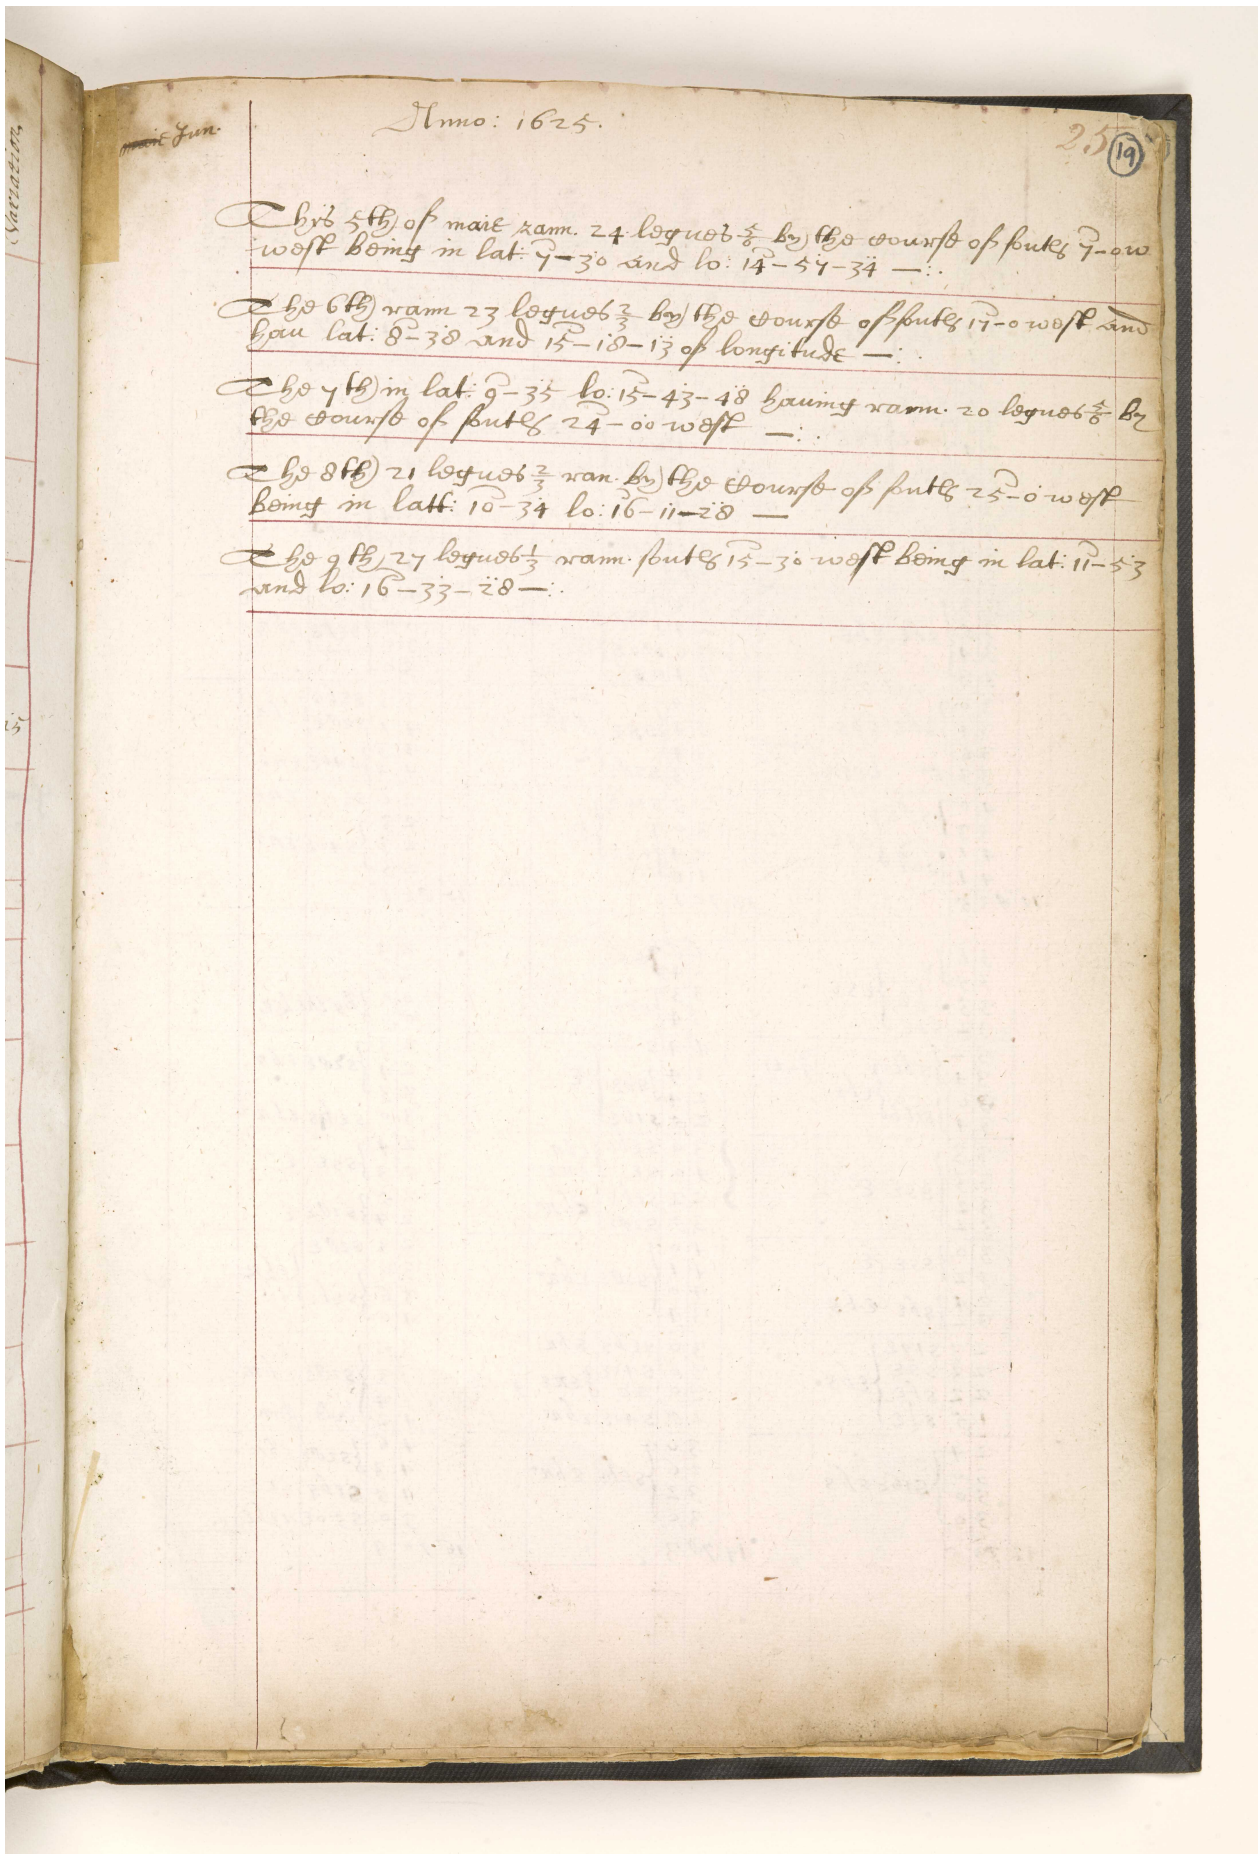 Varration
15
maie Jun.
Anno: 1625.
25
19
Thys 5th of maie rann. 24 legues 5/6 by the course of south 7-0 w
west being in lat: 7-30 and lo: 14-57-34
The 6th rann 23 legues 2/3 by the course of south 17-0 west and
hau lat: 8-38 and 15-18-13 of longitude
The 7th in lat: 9-35 lo: 15-43-48 hauing rann. 20 legues 5/6 by
the course of south 24-00 west
The 8th 21 legues 2/3 ran. by the course of south 25-0 west
being in latt: 10-34 lo: 16-11-28
The 9th 27 legues 1/3 rann. south 15-30 west being in lat: 11-53
and lo: 16-33-28